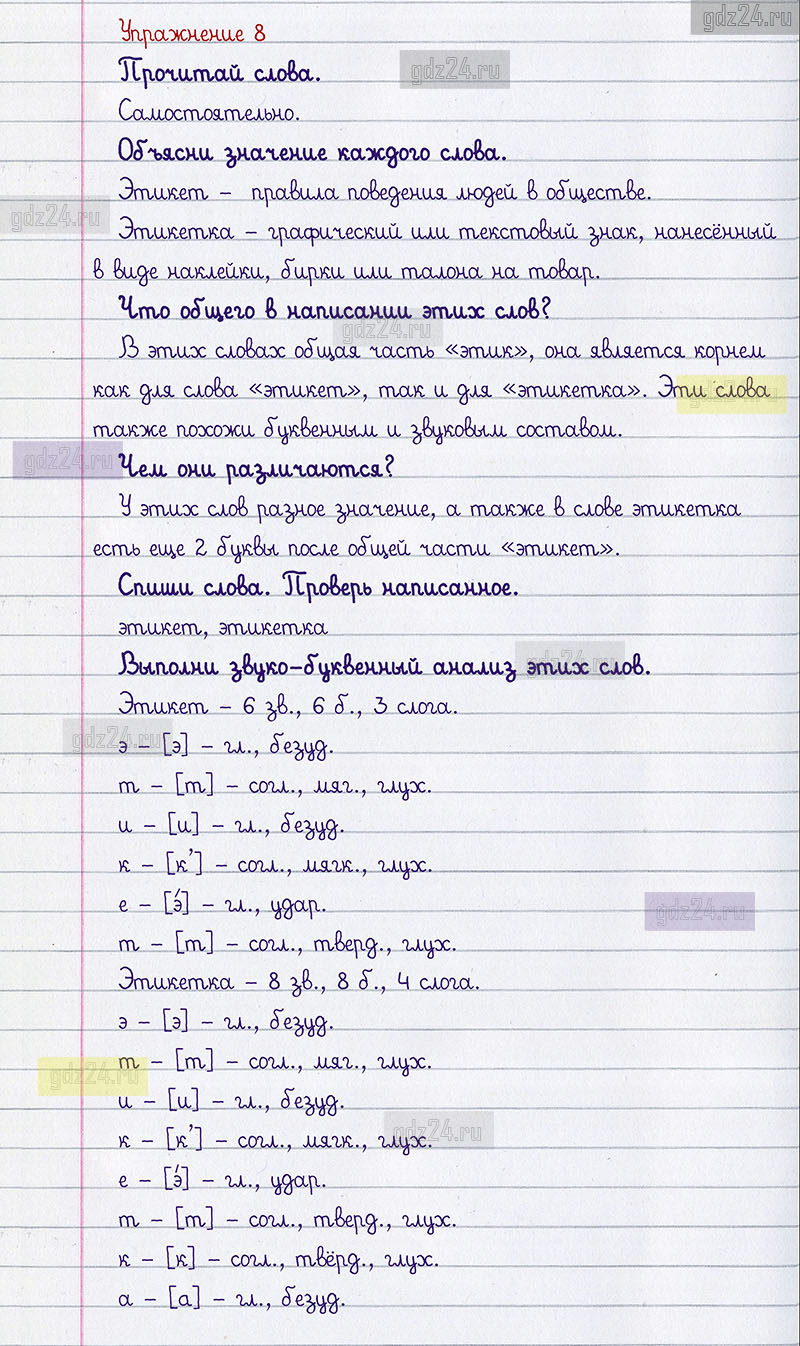 gdz24.ru
Упражнение 8
Прочитай слова.
gdz24.ru
Самостоятельно.
Объясни значение каждого слова.
Этикет – правила поведения людей в обществе.
gdz24.ru
Этикетка – графический или текстовый знак, нанесённый
в виде наклейки, бирки или талона на товар.
Что общего в написании этих слов?
gdz24.ru
В этих словах общая часть «этик», она является корнем
как для слова «этикет», так и для «этикетка». Эти слова
gdz24.ru
также похожи буквенным и звуковым составом.
gdz24.ru
Чем они различаются?
У этих слов разное значение, а также в слове этикетка
есть еще 2 буквы после общей части «этикет».
Спиши слова. Проверь написанное.
этикет, этикетка
Выполни звуко-буквенный анализ этих слов.
gdz24.ru
Этикет – 6 зв., 6 б., 3 слога.
gdz24.ru
э – [э] – гл., безуд.
т – [т] – согл., мяг., глух.
и – [и] – гл., безуд.
к – [к’] – согл., мягк., глух.
е – [э́] – гл., удар.
gdz24.ru
т – [т] – согл., тверд., глух.
Этикетка – 8 зв., 8 б., 4 слога.
э – [э] – гл., безуд.
т – [т] – согл., мяг., глух.
gdz24.ru
и – [и] – гл., безуд.
к – [к’] – согл., мягк., глух.
gdz24.ru
е – [э́] – гл., удар.
т – [т] – согл., тверд., глух.
к – [к] – согл., твёрд., глух.
а – [а] – гл., безуд.